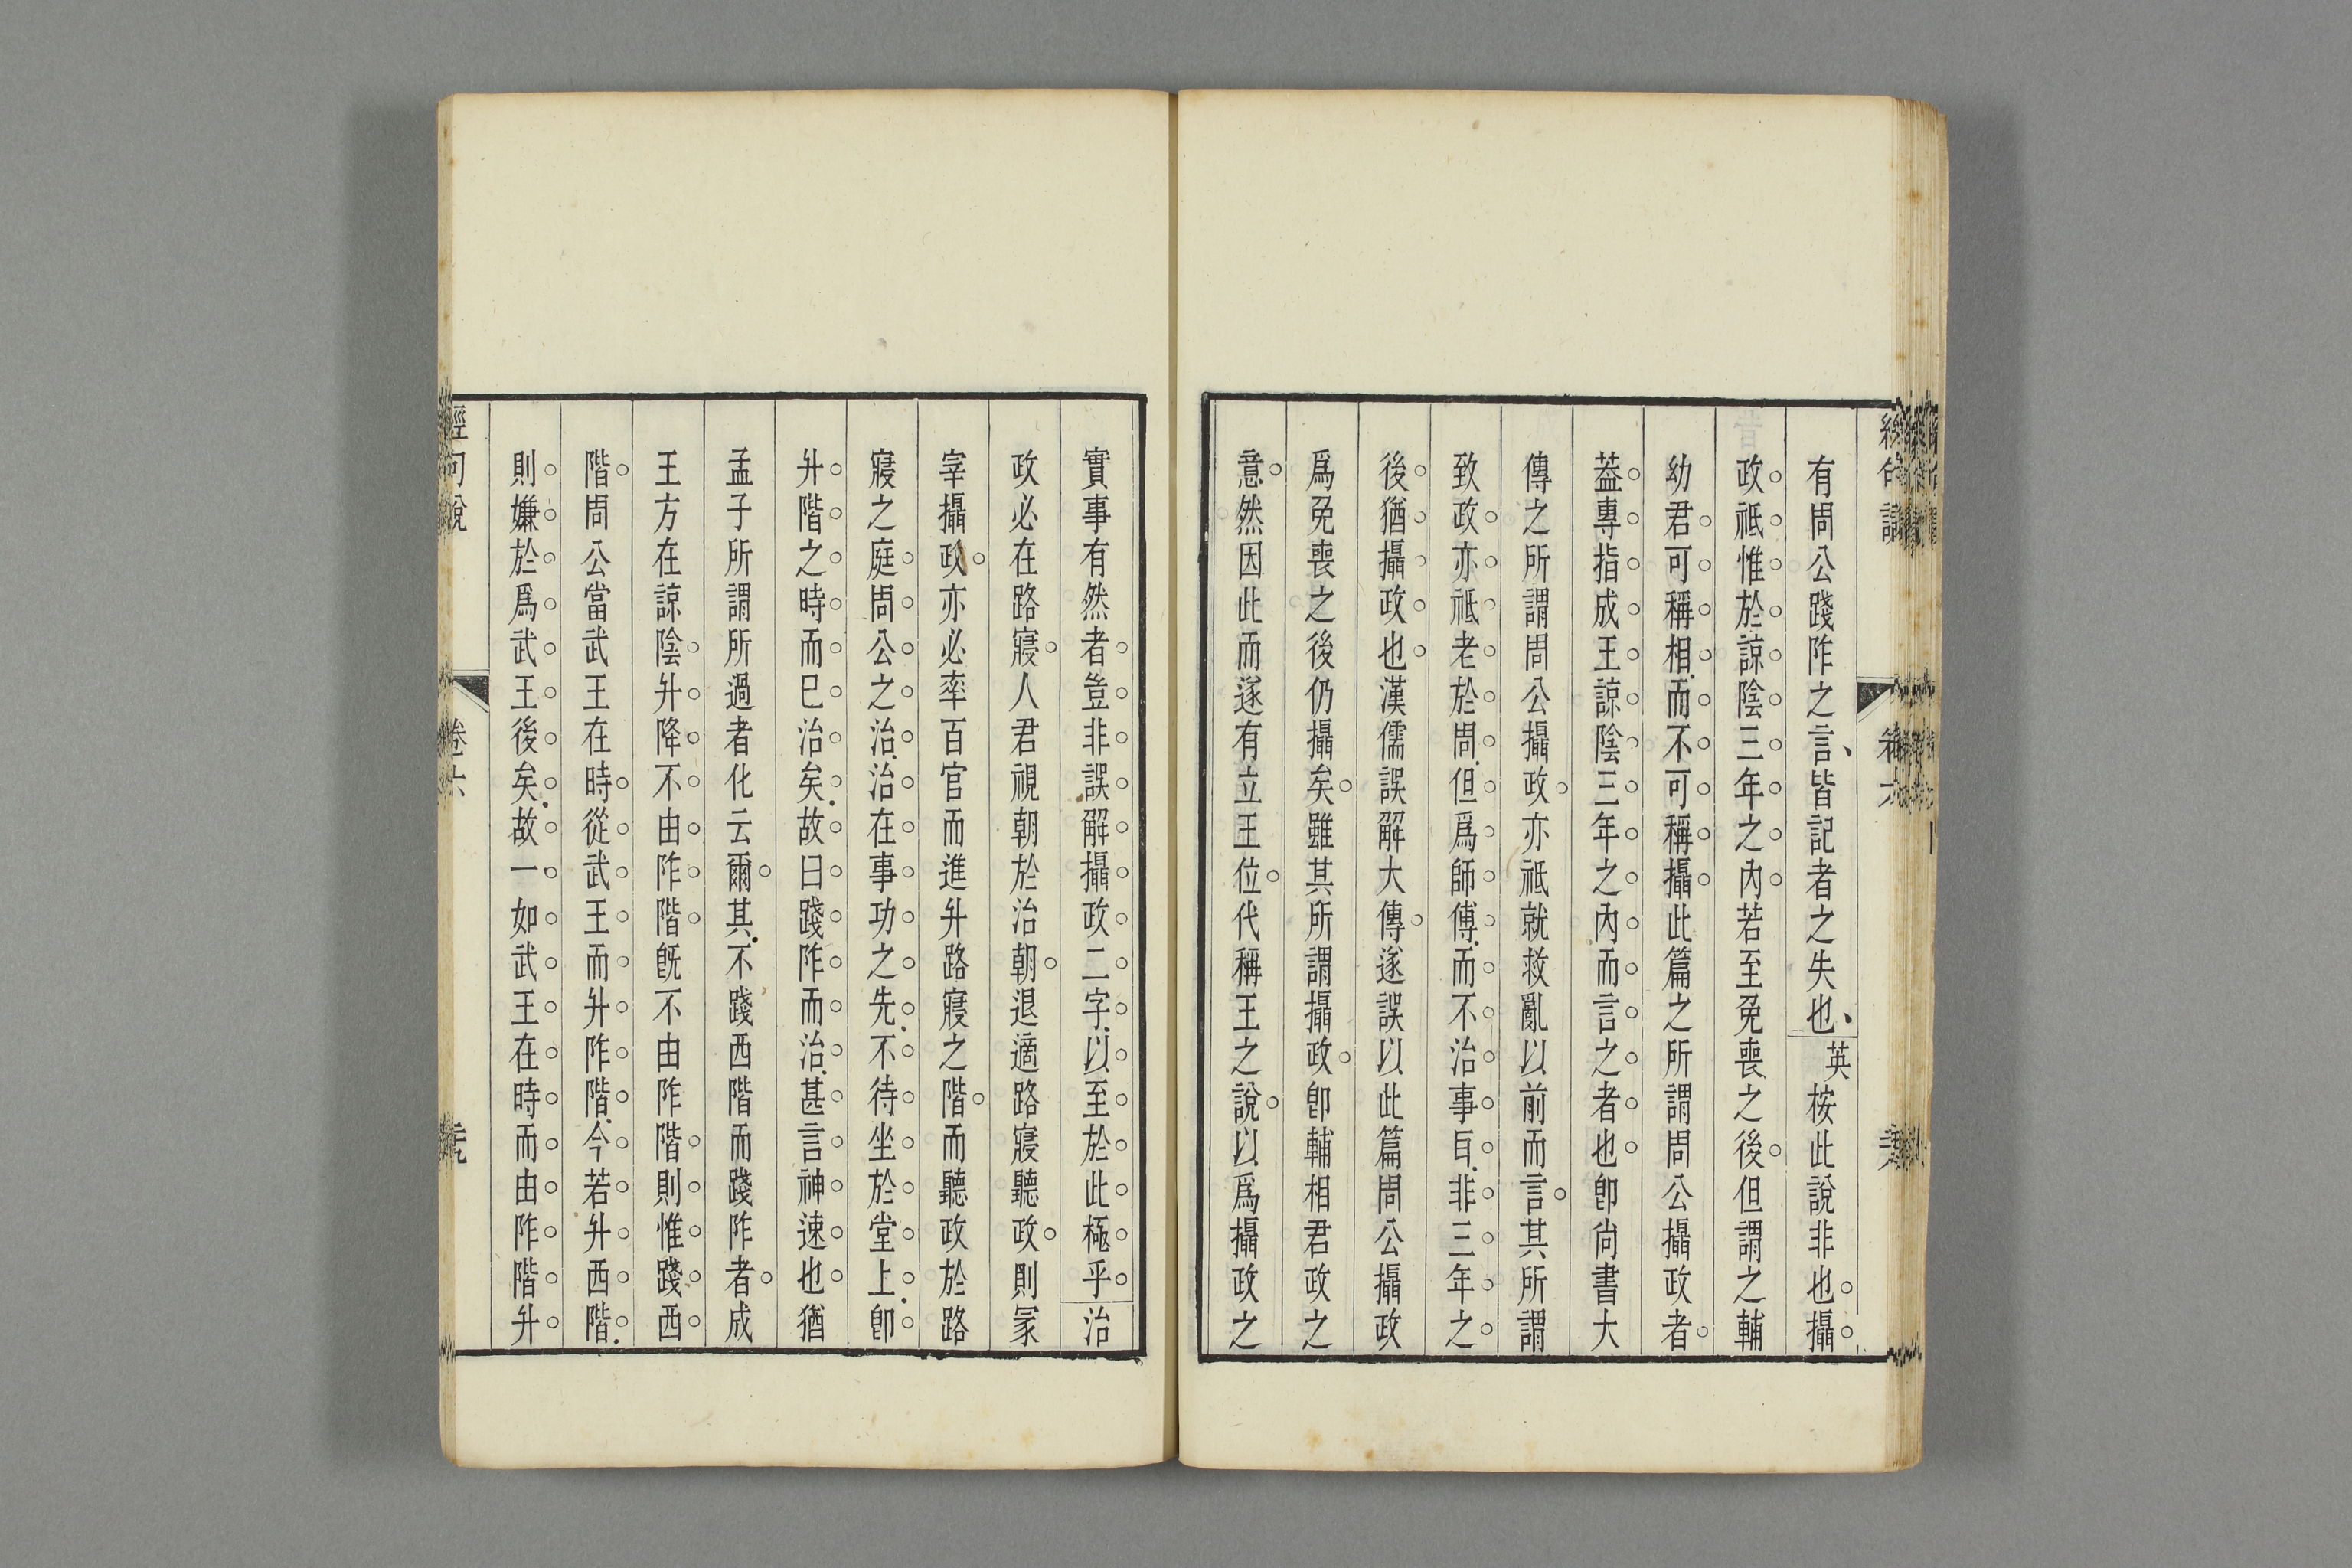 有周公踐阼之言、皆記者之失也、英桉此說非也攝
政祗惟於諒陰三年之內若至免喪之後但謂之輔
幼君可稱相而不可稱攝此篇之所謂周公攝政者
葢專指成王諒陰三年之內而言之者也卽尙書大
傳之所謂周公攝政亦祗就救亂以前而言其所謂
致政亦祗老於周但爲師傅而不治事㠯非三年之
後猶攝政也漢儒誤解大傳遂誤以此篇周公攝政
爲免喪之後仍攝矣雖其所謂攝政卽輔相君政之
意然因此而遂有立王位代稱王之說以爲攝政之
實事有然者豈非誤解攝政二字以至於此極乎治
政必在路寢人君視朝於治朝退適路寢聽政則冡
宰攝政亦必率百官而進升路寢之階而聽政於路
寢之庭周公之治治在事功之先不待坐於堂上卽
升階之時而巳治矣故曰踐阼而治甚言神速也猶
孟子所謂所過者化云爾其不踐西階而踐阼者成
王方在諒陰升降不由阼階旣不由阼階則惟踐西
階周公當武王在時從武王而升阼階今若升西階
則嫌於爲武王後矣故一如武王在時而由阼階升
經句說
卷六